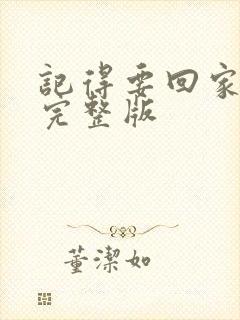 記得要回家
完整版
董潔如